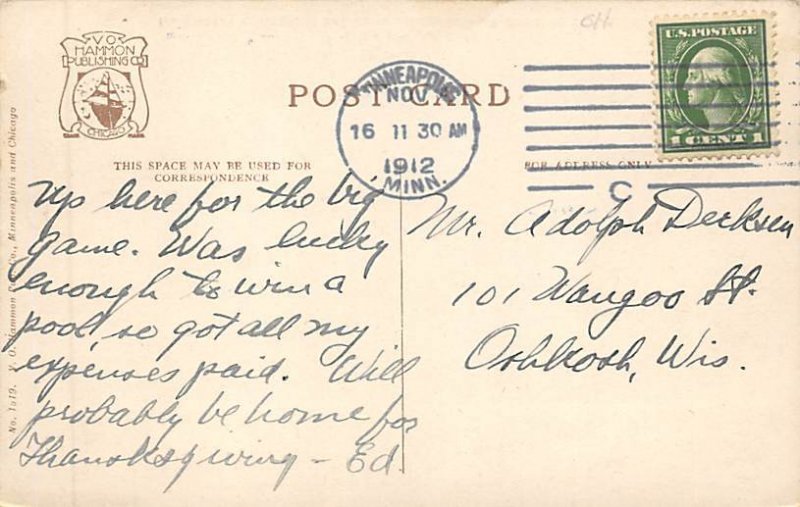 V O
HAMMON
PUBLISHING CO
CHICAGO
POST CARD
MINNEAPOLIS
NOV
16 11 30 AM
1912
MINN.
C
U.S. POSTAGE
1 CENT 1
THIS SPACE MAY BE USED FOR
CORRESPONDENCE
FOR ADDRESS ONLY
Up here for the big
game. Was lucky
enough to win a
pool, so got all my
expenses paid. Will
probably be home for
Thanksgiving – Ed
Mr. Adolph Derksen
101 Waugoo St.
Oshkosh, Wis.
No. 1519. V. O. Hammon Pub. Co., Minneapolis and Chicago